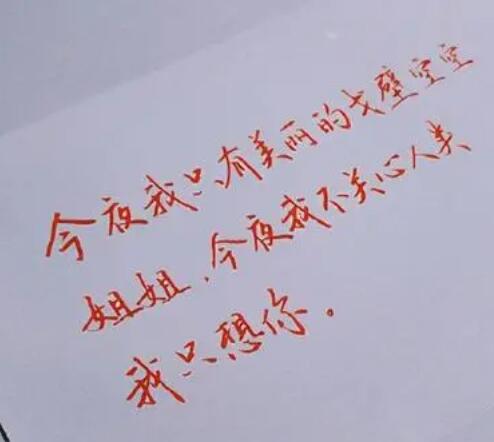 今夜我只有美丽的戈壁空空
姐姐，今夜我不关心人类
我只想你。